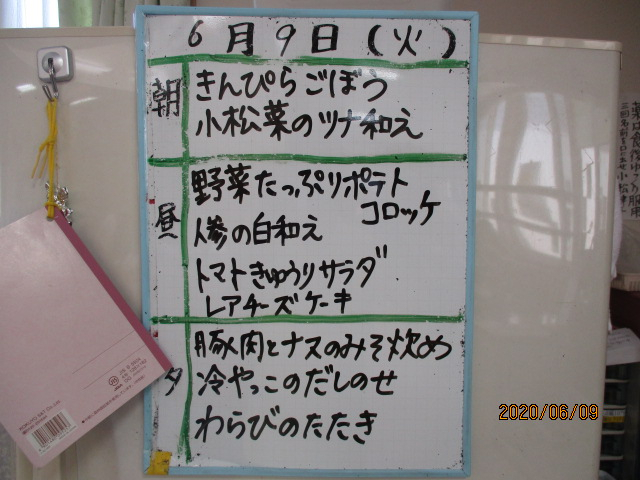 6月9日(火)
朝
きんぴらごぼう
小松菜のツナ和え
昼
野菜たっぷりポテト
コロッケ
人参の白和え
トマトきゅうりサラダ
レアチーズケーキ
夕
豚肉とナスのみそ炒め
冷やっこのだしのせ
わらびのたたき
2020/06/09